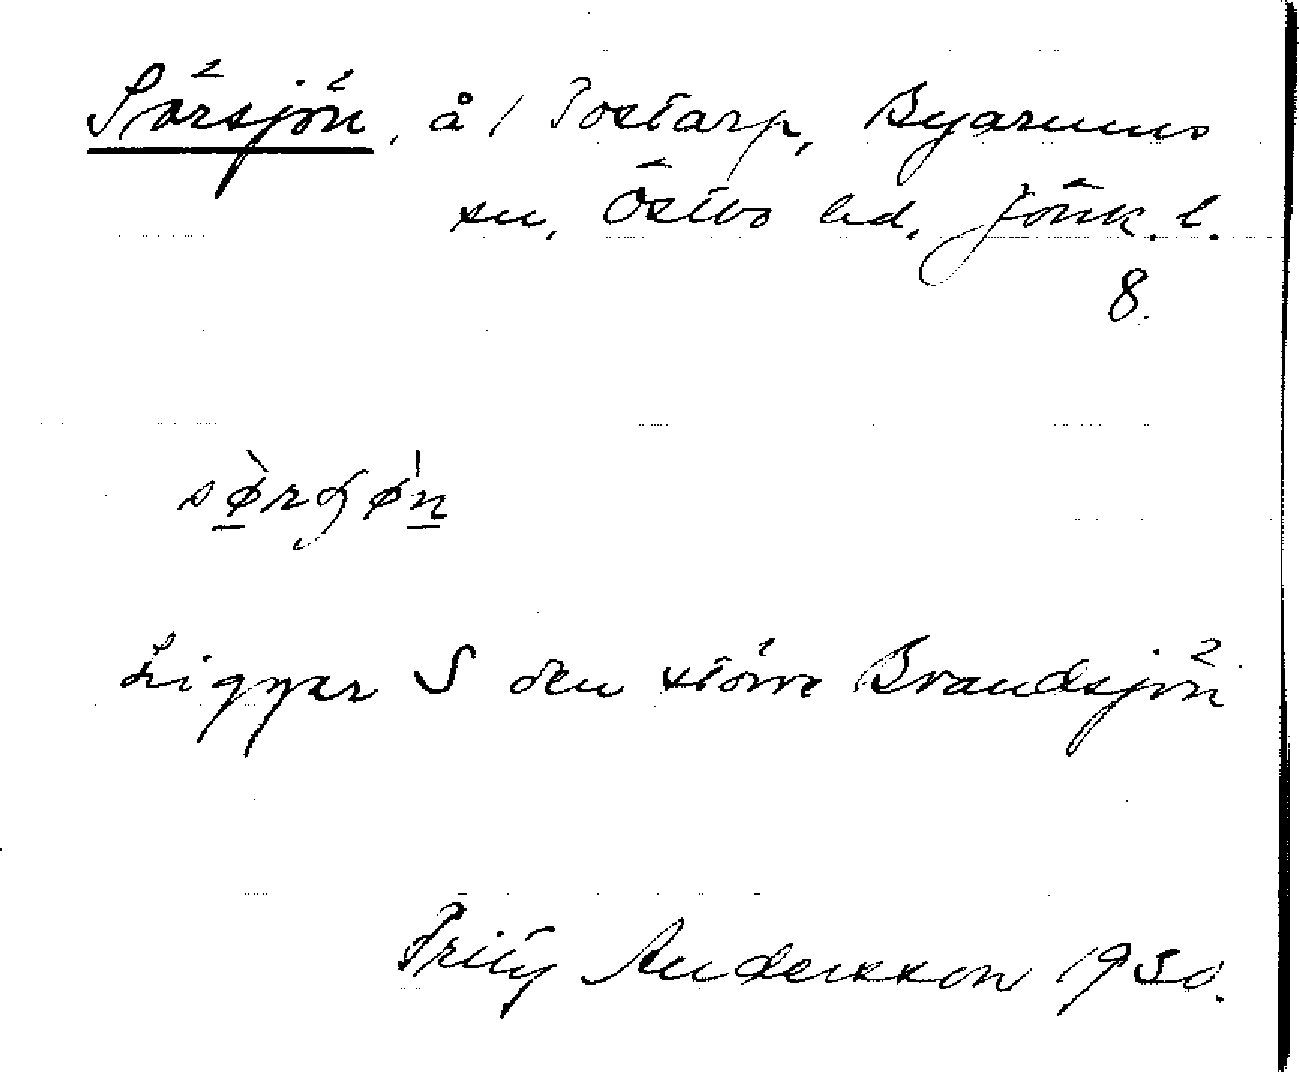 Sörsjön, å / Tostarp, Byarums
sn, Östbo hd, Jönk. l.
8.
sø̀rʃø̍n
Ligger S den större Brandsjön.
Fritz Andersson 1930.